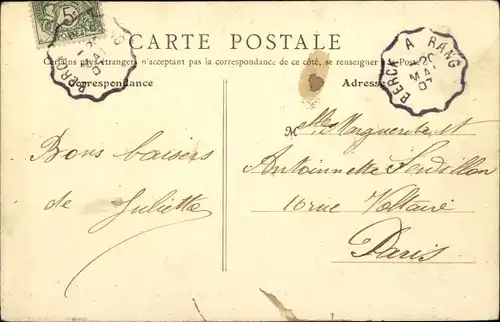 5
BERCK A RANG
20
MAI
CARTE POSTALE
Certains pays étrangers n'acceptant pas la correspondance de ce côté, se renseigner à la Poste
Correspondance
Adresse
BERCK A RANG
20
MAI
Bons baisers
de Juliette
Melles Marguerite et
Antoinette
16 rue Voltaire
Paris